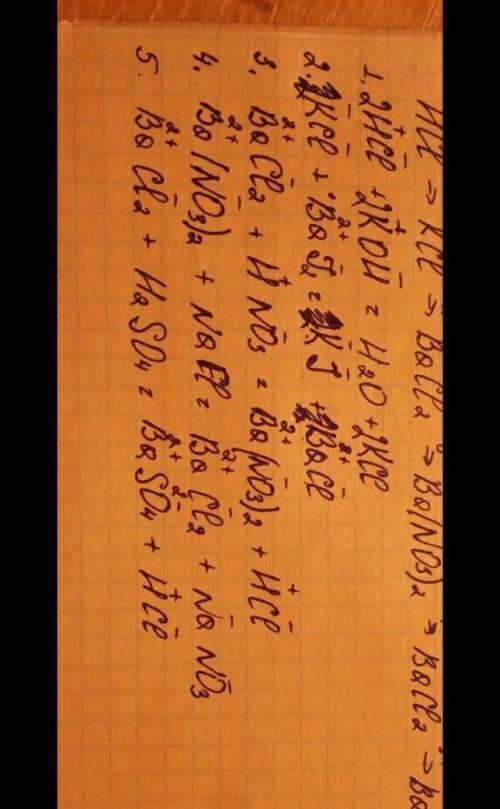 HCl ⇒ KCl ⇒ BaCl2 ⇒ Ba(NO3)2 ⇒ BaCl2 ⇒ Ba
1. 2H⁺Cl⁻ + 2K⁺OH⁻ = H2O + 2KCl
2. KCl⁻ + Ba²⁺J2⁻ = KJ⁻ + Ba²⁺Cl⁻
3. Ba²⁺Cl2⁻ + H⁺NO3⁻ = Ba²⁺(NO3⁻)2 + H⁺Cl⁻
4. Ba²⁺(NO3⁻)2 + NaCl = Ba²⁺Cl2⁻ + NaNO3⁻
5. Ba²⁺Cl2⁻ + H2SO4 = Ba²⁺SO4²⁻ + H⁺Cl⁻